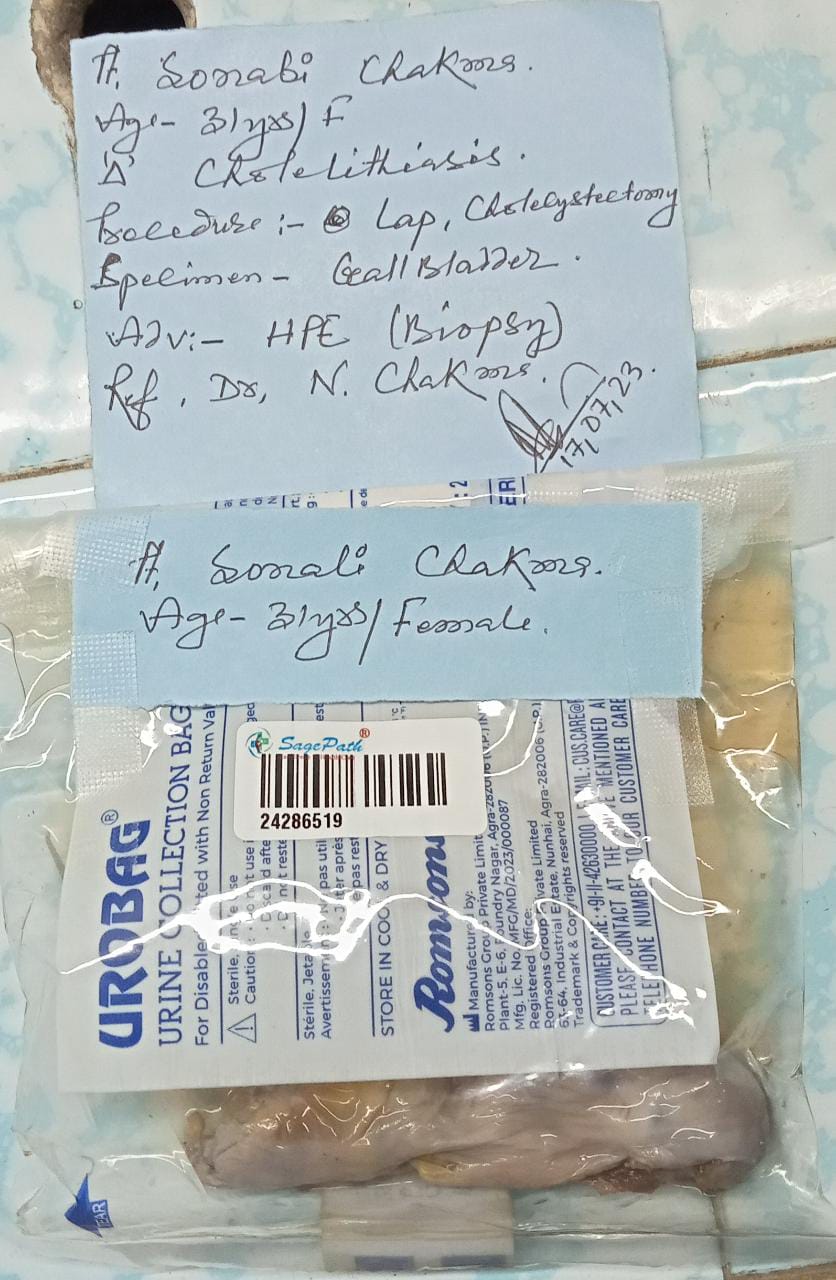 Pt, Sonali Chakma.
Age- 31yrs/F
'Δ' Cholelithiasis.
Procedure :- Lap, Cholecystectomy
Specimen - Gall Bladder.
Adv:- HPE (Biopsy)
Ref, Dr, N. Chakma.
17,07,23.
Pt, Sonali Chakma.
Age- 31yrs/Female.
SagePath®
24286519
UROBAG®
URINE COLLECTION BAG
For Disabled with Non Return Val
Sterile,
Caution:
Stérile, Jetable
Avertissement
STORE IN COOL & DRY
Romsons
Manufactured by:
Romsons Group Private Limit
Plant-5, E-6, Foundry Nagar, Agra-282006 (U.P.) IN
Mfg. Lic. No. MFG/MD/2023/000087
Registered Office:
Romsons Group Private Limited
63-64, Industrial Estate, Nunhai, Agra-282006 (U.P.)
Trademark & Copyrights reserved
CUSTOMER CARE: +91-11-42630000
PLEASE CONTACT AT THE MENTIONED A
TELEPHONE NUMBER TO OUR CUSTOMER CARE
TEAR